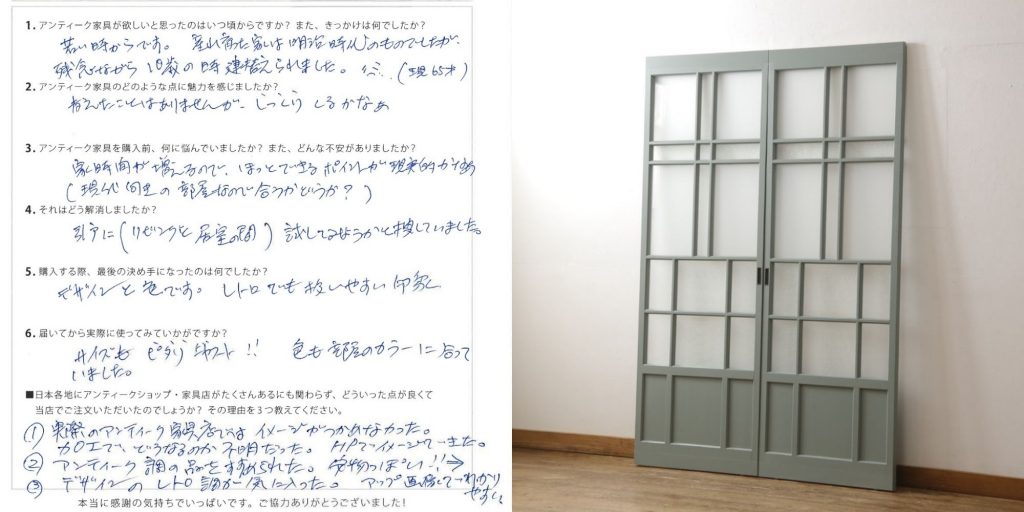 1. アンティーク家具が欲しいと思ったのはいつ頃からですか? また、きっかけは何でしたか?
若い時からです。 生れ育った家は明治時代のものでしたが、
残念ながら 18歳の時 建替えられました。 (現65才)
2. アンティーク家具のどのような点に魅力を感じましたか?
考えたことはありませんが、 しっくり くるかなぁ
3. アンティーク家具を購入前、何に悩んでいましたか? また、どんな不安がありましたか?
家時間が増えるので、ほっとできるポイントが
(現代 の部屋なので合うかどうか?)
4. それはどう解消しましたか?
引戸に(リビングと居室の間) 試してみようかと捜していました。
5. 購入する際、最後の決め手になったのは何でしたか?
デザインと色です。 レトロでも扱いやすい印象
6. 届いてから実際に使ってみていかがですか?
サイズも ピッタリ !! 色も部屋のカラーに合って
いました。
■日本各地にアンティークショップ・家具店がたくさんあるにも関わらず、どういった点が良くて
当店でご注文いただいたのでしょうか? その理由を3つ教えてください。
① 実際のアンティーク家具店では イメージがつかめなかった。
加工で、どうなるのか不明だった。 HPでイメージできました。
② アンティーク調の品をすすめられた。 安物っぽい!!→
③ デザインの レトロ調が気に入った。 アップ わかり
やすい。
本当に感謝の気持ちでいっぱいです。ご協力ありがとうございました!